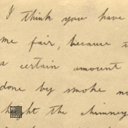 I think you have
me fair, because
a certain amount
done by smoke
the chimney